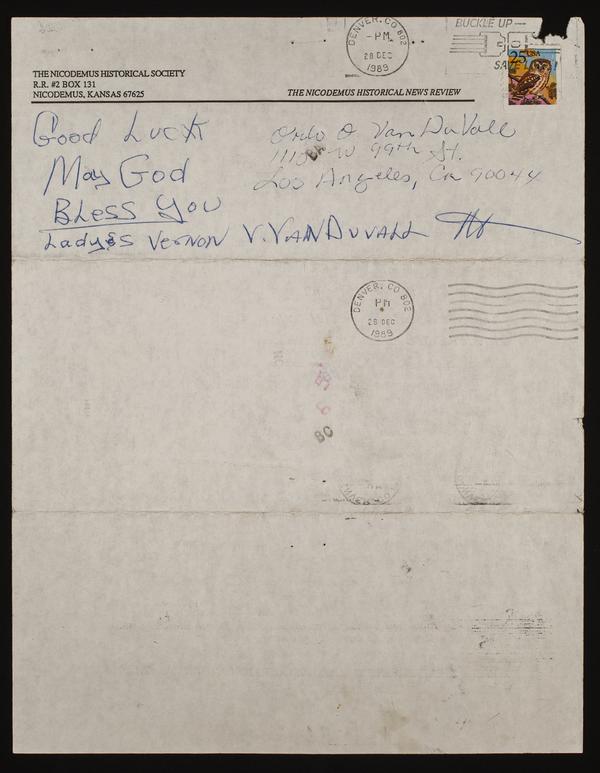 DENVER, CO 802
PM
28 DEC
1989
BUCKLE UP
25 USA
THE NICODEMUS HISTORICAL SOCIETY
R.R. #2 BOX 131
NICODEMUS, KANSAS 67625
THE NICODEMUS HISTORICAL NEWS REVIEW
Good Luck
May God
Bless You
Ladyes Vernon V. VanDuvall
O VanDuVall
W 99th St.
Los Angeles, Ca 90044
DENVER, CO 802
PM
28 DEC
1989
BC